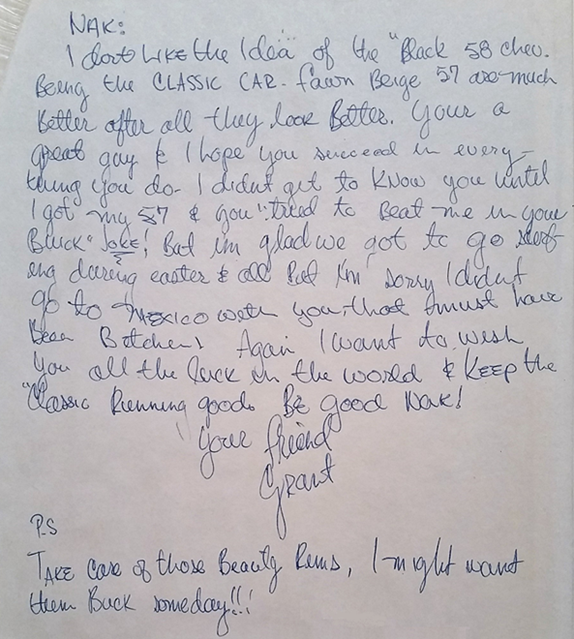 NAK:
I dont LIKE the Idea" of the "Black 58 chev.
Being the CLASSIC CAR. Fawn Beige 57 are much
Better after all they look Better. Your a
great guy & I hope you succeed in every-
thing you do. I didnt get to know you until
I got my 57 & you "tried to Beat me in your
Bluck" Joke! But im glad we got to go surf-
ing during easter & all But I'm sorry I didnt
go to Mexico with you, that must have
Been Bitchen! Again I want to wish
you all the luck in the world & KEEP the
"Classic Running good. Be good Nak!
Your friend
Grant
P.S
TAKE Care of those Beauty Rims, I might want
them Buck someday!!!